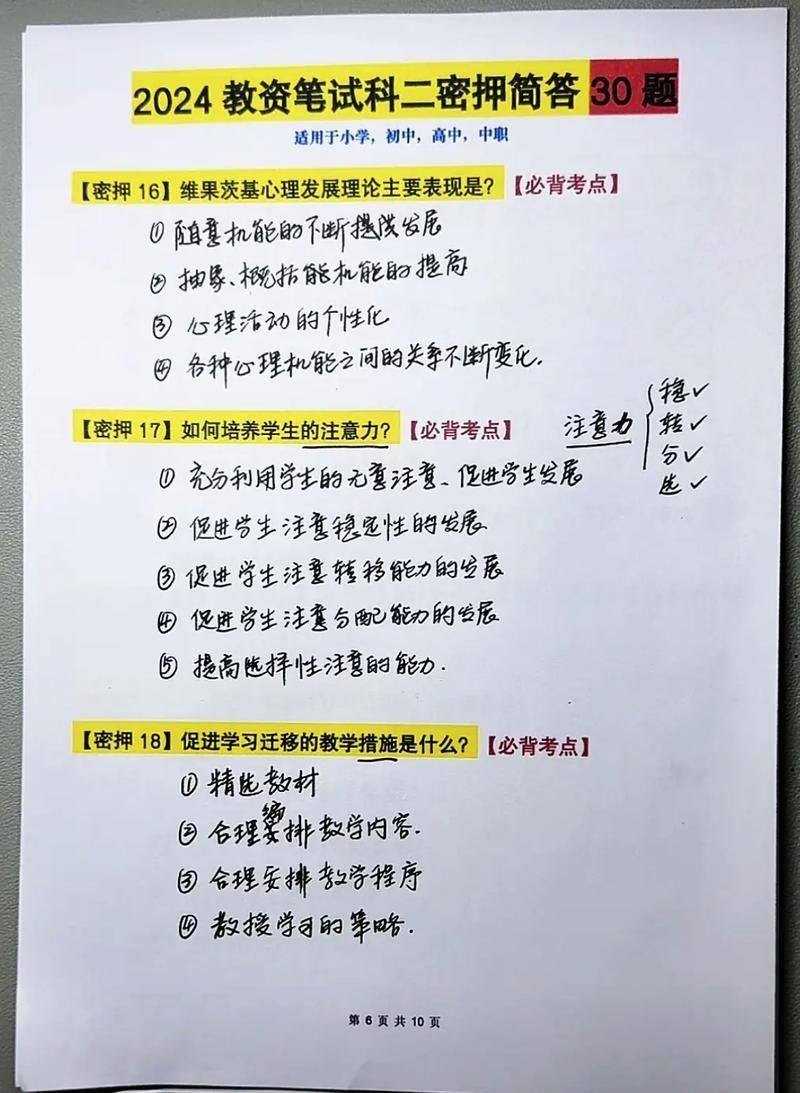 2024 教资笔试科二密押简答 30 题
适用于小学，初中，高中，中职
【密押 16】维果茨基心理发展理论主要表现是？【必背考点】
① 随意机能的不断提发展
② 抽象、概括能机能的提高
③ 心理活动的个性化
④ 各种心理机能之间的关系不断变化.
【密押 17】如何培养学生的注意力？【必背考点】
注意力 { 稳✓
转✓
分✓
选✓
① 充分利用学生的无意注意、促进学生发展
② 促进学生注意稳定性的发展
③ 促进学生注意转移能力的发展
④ 促进学生注意分配能力的发展
⑤ 提高选择性注意的能力.
【密押 18】促进学习迁移的教学措施是什么？【必背考点】
① 精选教材
② 合理编排教学内容.
③ 合理安排教学程序
④ 教授学习的策略.
第 6 页 共 10 页